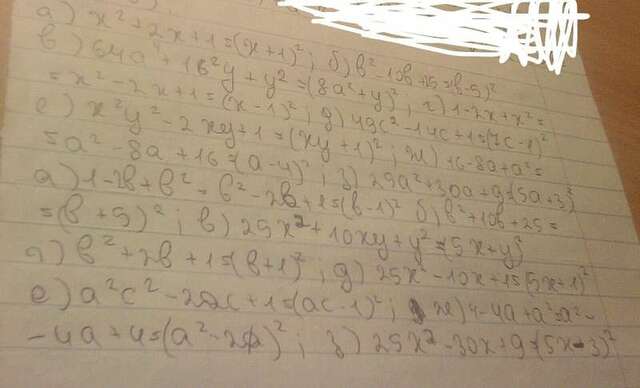 а) x² + 2x + 1 = (x + 1)²; б) b² - 10b + 25 = (b - 5)²
в) 64a⁴ + 16²y + y² = (8a² + y)²; г) 1 - 2x + x² =
= x² - 2x + 1 = (x - 1)²; д) 49c² - 14c + 1 = (7c - 1)²
е) x²y² - 2xy + 1 = (xy + 1)²; ж) 16 - 8a + a² =
= a² - 8a + 16 = (a - 4)²; з) 25a² + 30a + 9 = (5a + 3)²
а) 1 - 2b + b² = b² - 2b + 1 = (b - 1)² б) b² + 10b + 25 =
= (b + 5)²; в) 25x² + 10xy + y² = (5x + y)²
г) b² + 2b + 1 = (b + 1)²; д) 25x² - 10x + 1 = (5x + 1)²
е) a²c² - 2ac + 1 = (ac - 1)²; ж) 4 - 4a + a² = a² -
- 4a + 4 = (a² - 2)²; з) 25x² - 30x + 9 = (5x - 3)²